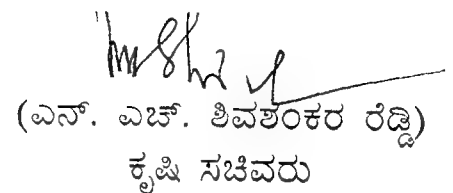 (ಎನ್. ಎಚ್. ಶಿವಶಂಕರ ರೆಡ್ಡಿ)
ಕೃಷಿ ಸಚಿವರು